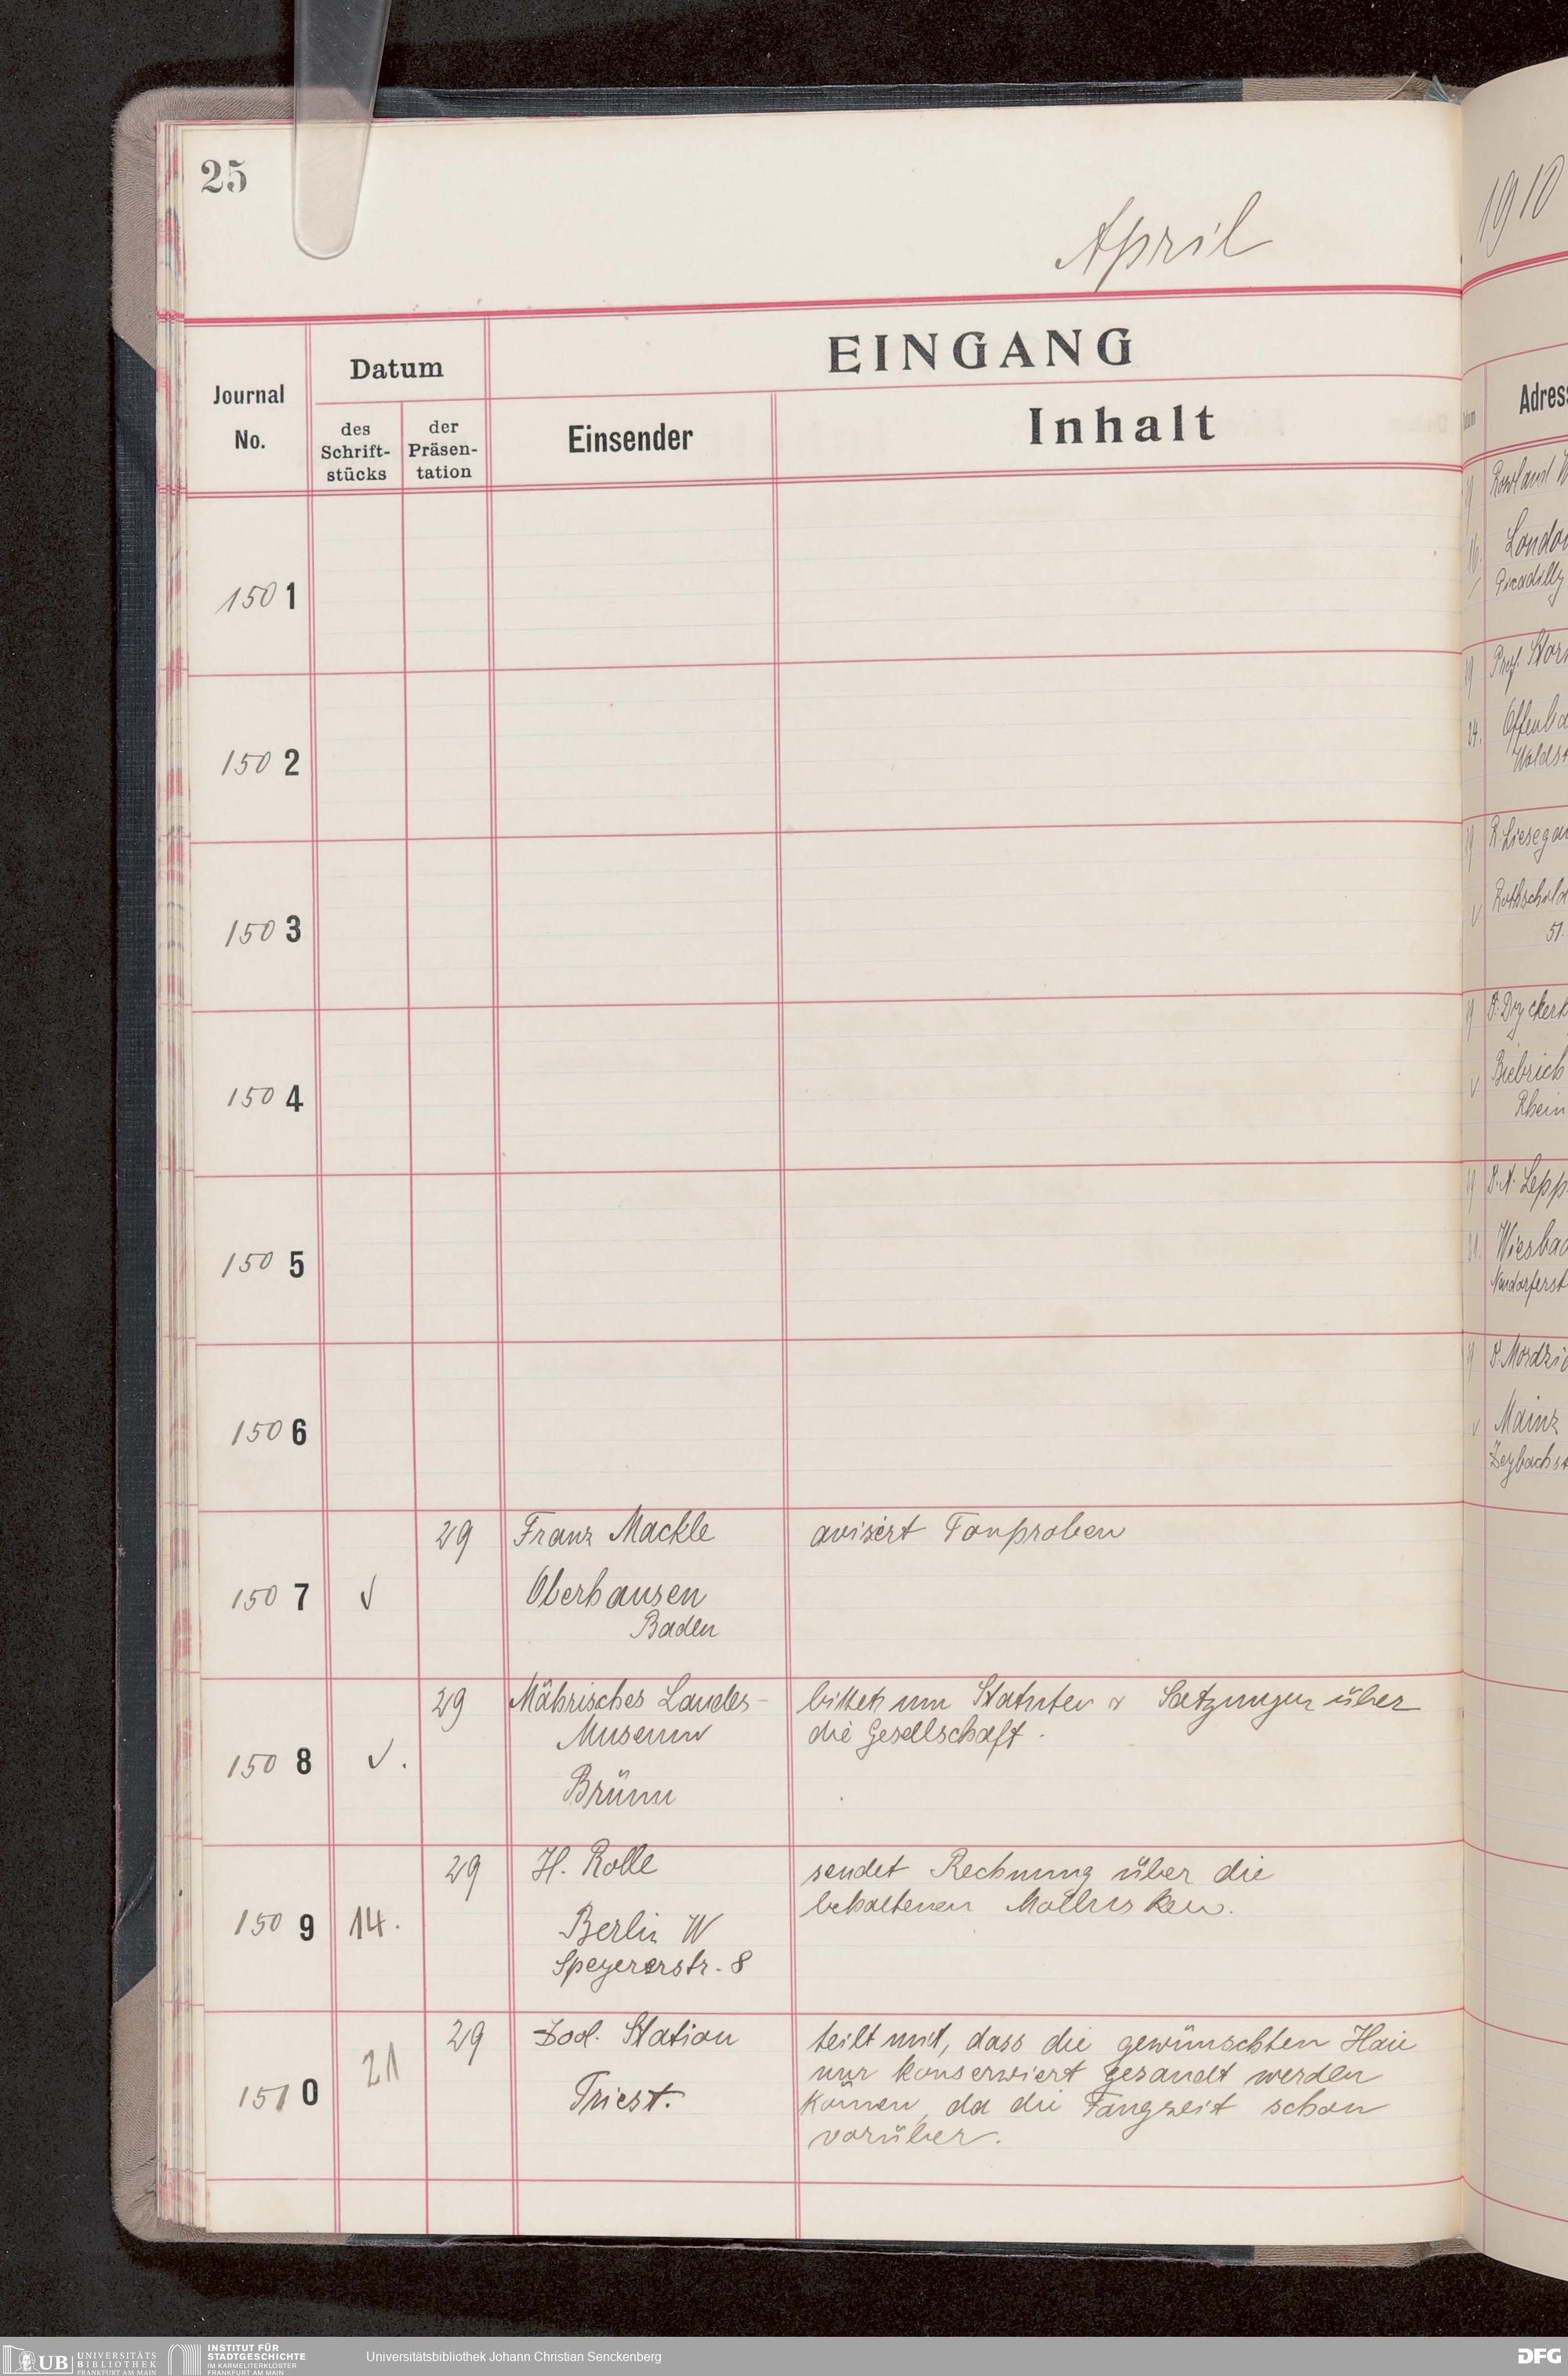 25
April
EINGANG
Journal
No.
Datum
des
Schrift-
stücks
der
Präsen-
tation
Einsender
Inhalt
1501
1502
1503
1504
1505
1506
1507
√
29
Franz Mackle
Oberhausen
Baden
avisiert Tonproben
1508
√.
29
Mährisches Landes-
Museum
Brünn
bittet um Statuten & Satzungen über
die Gesellschaft.
1509
14.
29
H. Rolle
Berlin W
Speyererstr. 8
sendet Rechnung über die
behaltenen Mollusken.
1510
21
29
Zool. Station
Triest.
teilt mit, dass die gewünschten Haie
nur konserviert gesandt werden
können, da die Fangzeit schon
vorüber.
1910
Adress
Rowland
London
Piccadilly
Prof.
Offenba
Waldst
R. Liesega
Rothschild
51.
Dyckerh
Biebrich
Rhein
Lepp
Wiesbad
Mainz
UB UNIVERSITÄTS
BIBLIOTHEK
FRANKFURT AM MAIN
INSTITUT FÜR
STADTGESCHICHTE
IM KARMELITERKLOSTER
FRANKFURT AM MAIN
Universitätsbibliothek Johann Christian Senckenberg
DFG